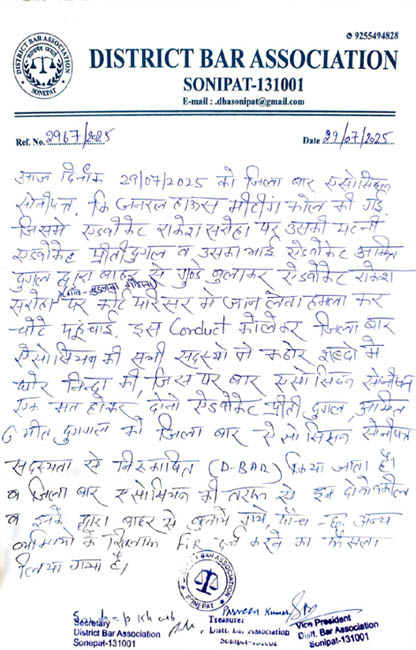 ✆ 9255494828
DISTRICT BAR ASSOCIATION
SONEPAT
DISTRICT BAR ASSOCIATION
SONIPAT-131001
E-mail : .dbasonipat@gmail.com
Ref. No. 2967/2025 Date 29/07/2025
आज दिनांक 29/07/2025 को जिला बार एसोसिएशन
सोनीपत, कि जनरल हाऊस मीटींग कोल की गई
जिसमे एडवोकेट राकेश सरोहा पर उसकी पत्नी
एडवोकेट प्रीती दुगल व उसका भाई ऐडवोकेट अमित
दुगल द्वारा बाहर से गुण्डे बुलाकर ऐडवोकेट राकेश
सरोहा पर कोर्ट परिसर मे जान लेवा हमला कर
चोटे पहुंचाई, इस Conduct को लेकर जिला बार
ऐसोसियन की सभी सदस्यो ने कठोर शब्दो मे
घोर निन्दा की, जिस पर बार एसोसिएशन सोनीपत
एक मत होकर, दोनो ऐडवोकेट प्रीती दुगल, अमित
दुगगल को जिला बार एसोसिएशन सोनीपत
सदस्यता से निस्कासित (D-BAR) किया जाता है।
व जिला बार एसोसियन की तरफ से इन दोनो वकील
व इनके द्वारा बाहर से बुलाये गये, पाँच - छः अन्य
व्यक्तियों के खिलाफ FIR दर्ज करने का फैसला
लिया गया है।
DISTRICT BAR ASSOCIATION
SONEPAT
Parveen Kumar
Secretary Treasurer Vice President
District Bar Association Distt. Bar Association Distt. Bar Association
Sonipat-131001 Sonipat-131001 Sonipat-131001